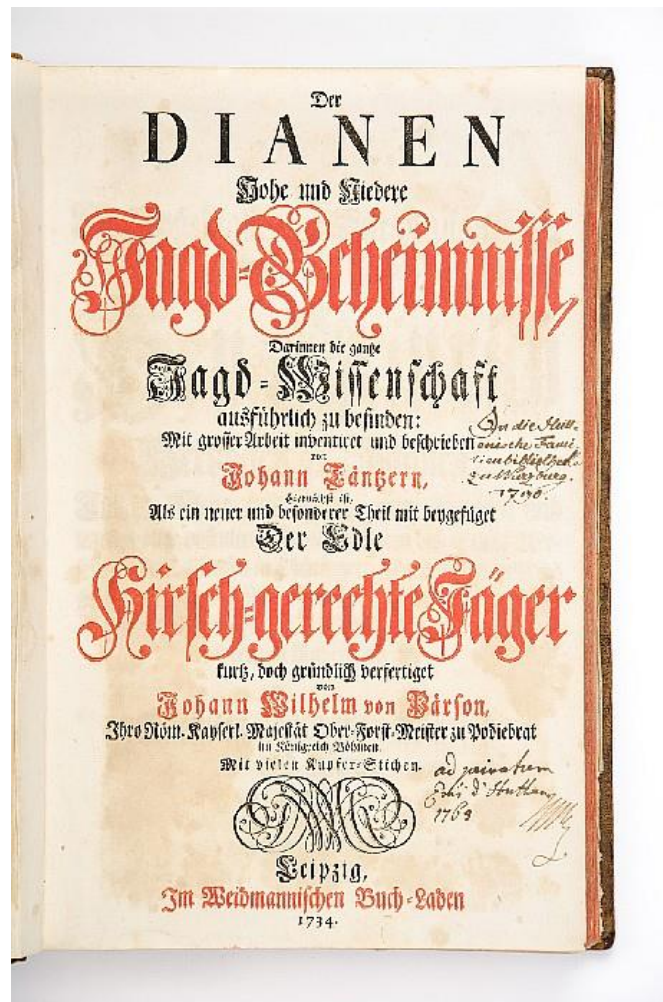 Der
DIANEN
Hohe und Niedere
Jagd-Geheimnisse,
Darinnen die gantze
Jagd-Wissenschaft
ausführlich zu befinden:
Mit grosser Arbeit inventiret und beschrieben
von
Johann Täntzern,
Hiernächst ist,
Als ein neuer und besonderer Theil mit beygefüget
Der Edle
Hirsch-gerechte Jäger
kurtz, doch gründlich verfertiget
von
Johann Wilhelm von Pärson,
Ihro Röm. Kayserl. Majestät Ober-Forst-Meister zu Podiebrat
im Königreich Böhmen.
Mit vielen Kupfer-Stichen.
Leipzig,
Im Weidmannischen Buch-Laden
1734.
An die
Fami-
lienbibliothek
zu Würzburg.
1790.
ad privatum
1763